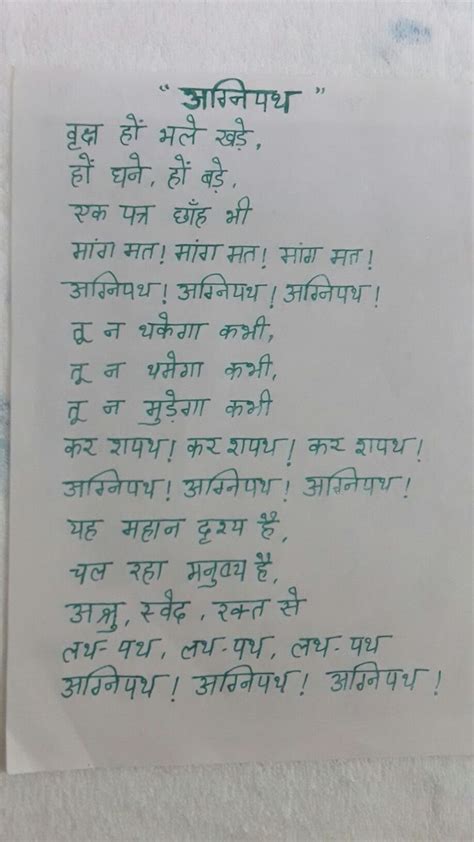 " अग्निपथ "
वृक्ष हों भले खड़े,
हों घने, हों बड़े,
एक पत्र छाँह भी
मांग मत! मांग मत! मांग मत!
अग्निपथ! अग्निपथ! अग्निपथ!
तू न थकेगा कभी,
तू न थमेगा कभी,
तू न मुड़ेगा कभी
कर शपथ! कर शपथ! कर शपथ!
अग्निपथ! अग्निपथ! अग्निपथ!
यह महान दृश्य है,
चल रहा मनुष्य है,
अश्रु, स्वेद, रक्त से
लथ-पथ, लथ-पथ, लथ-पथ
अग्निपथ! अग्निपथ! अग्निपथ!